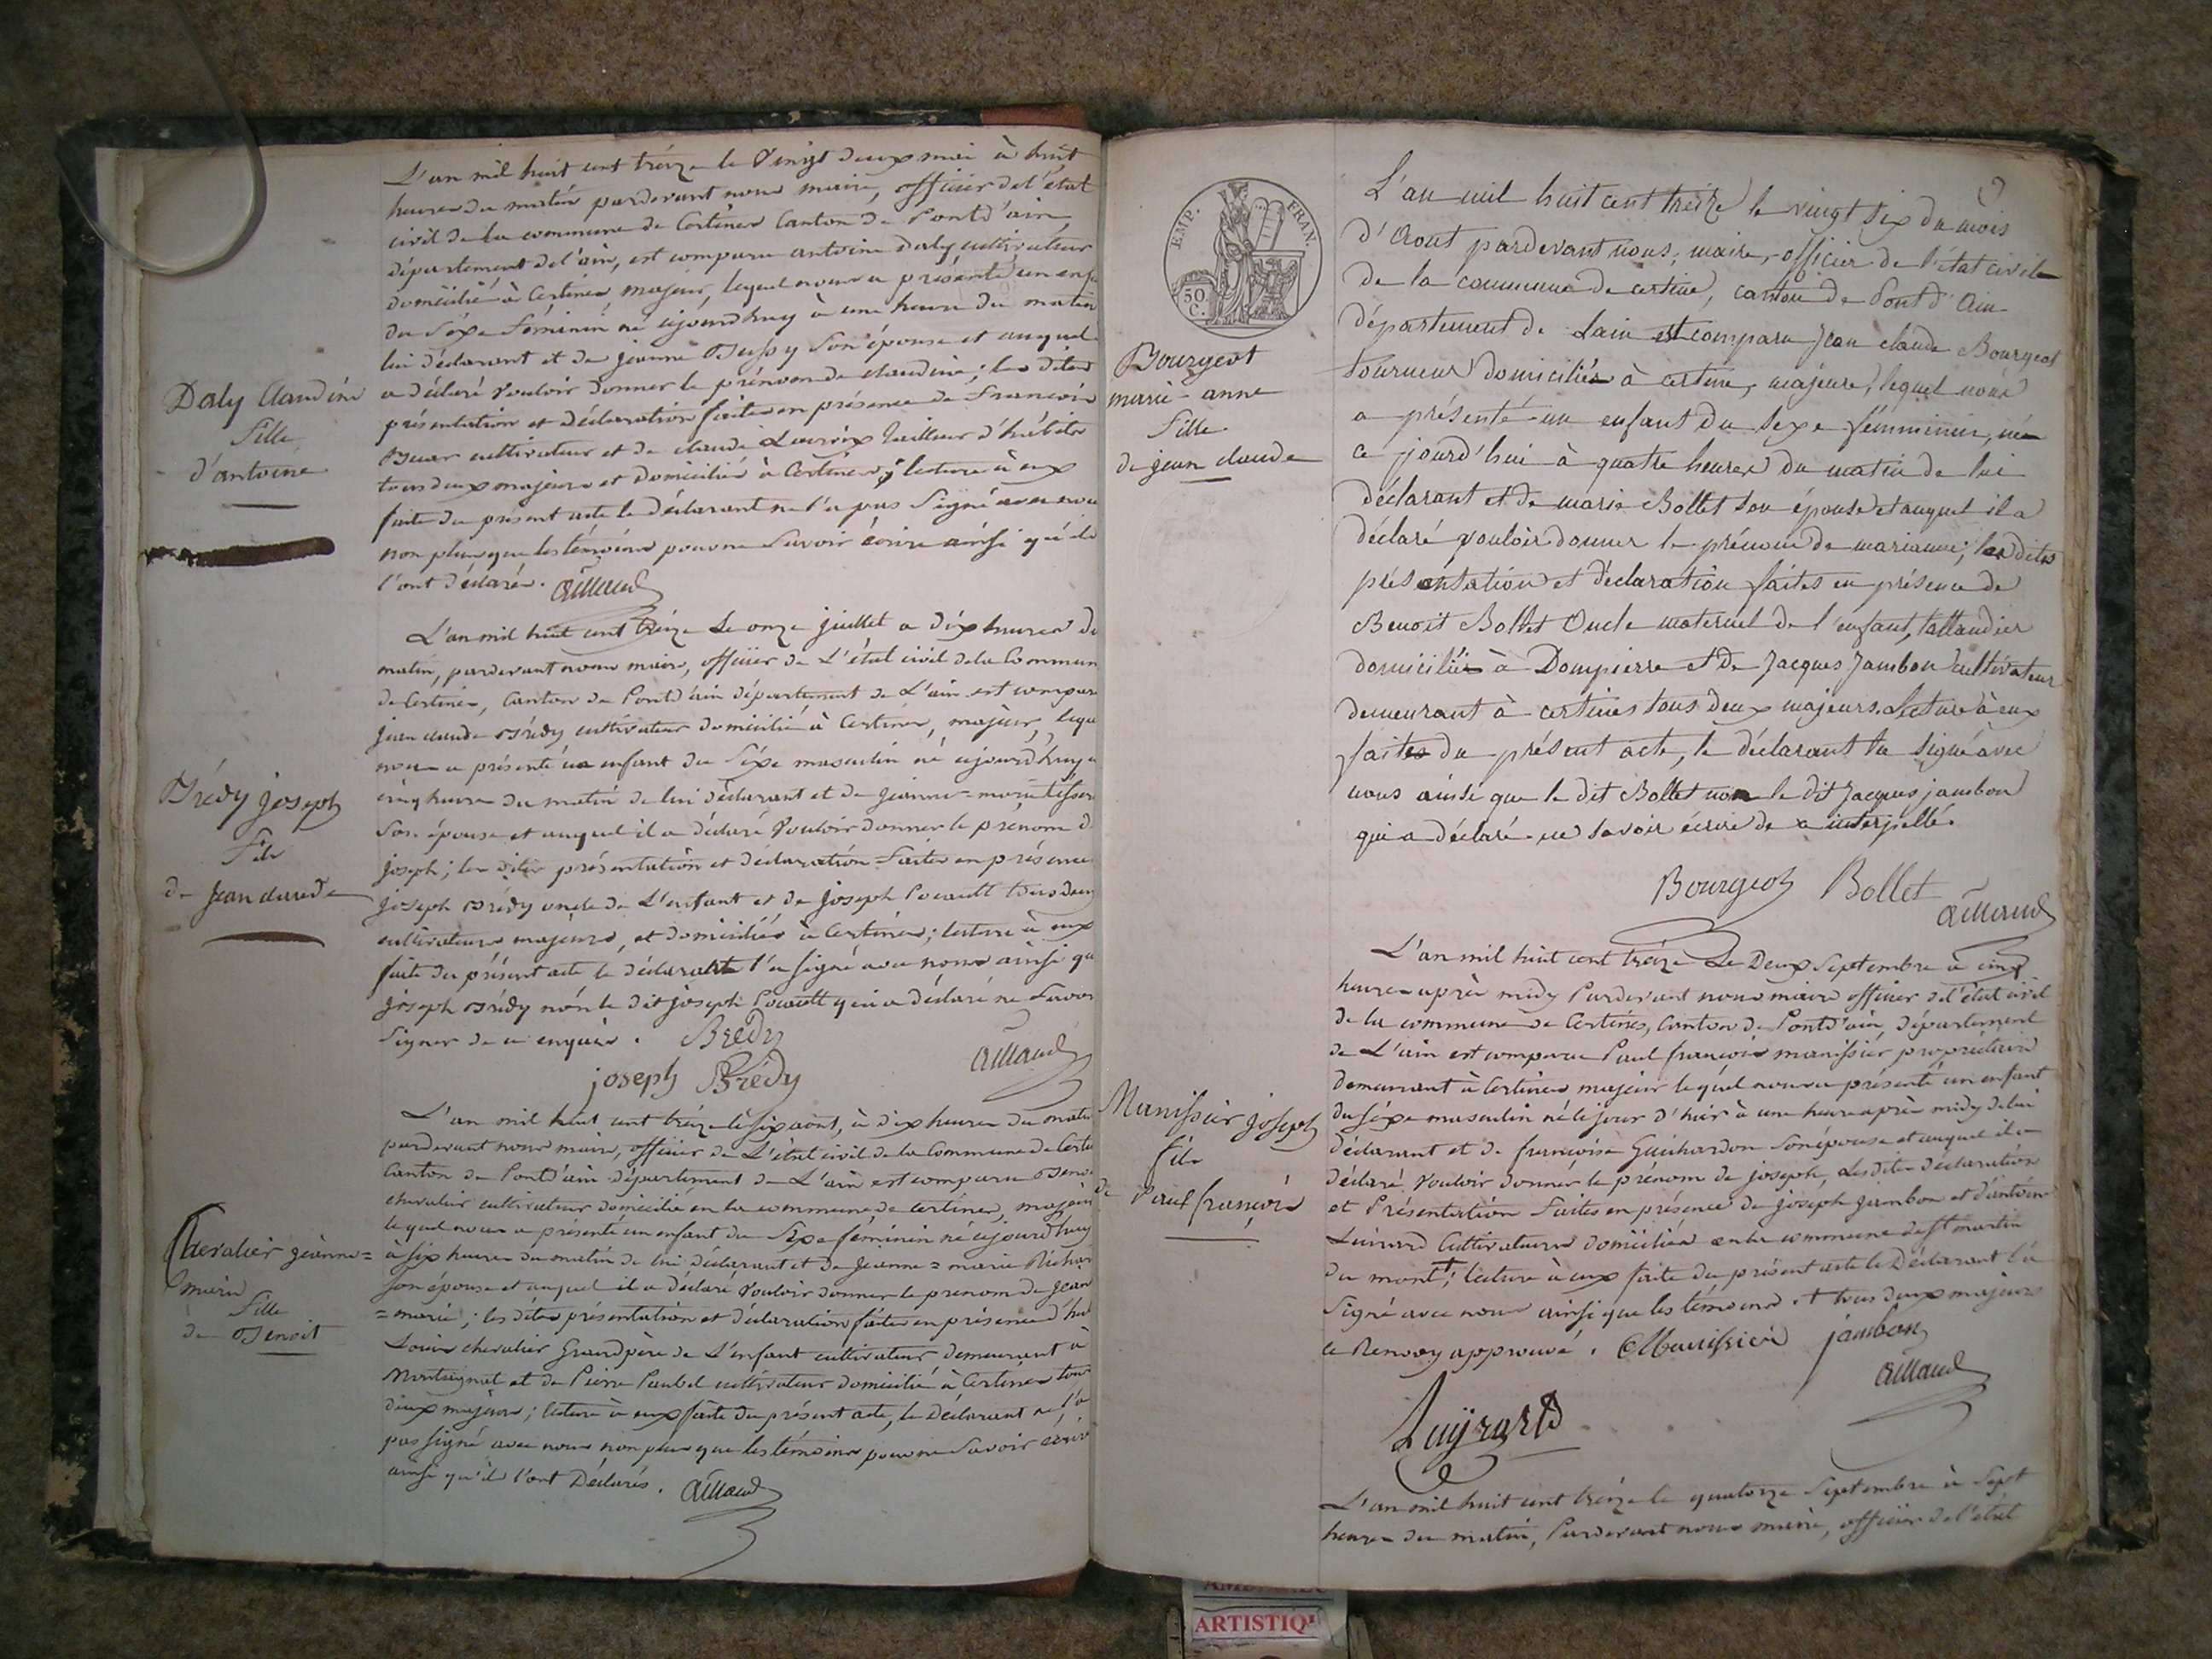 L'an mil huit cent treize le Vingt deux mai à huit
heures du matin pardevant nous maire, officier de l'état
civil de la commune de Certines Canton de Pontd'ain,
département de l'ain, est comparu antoine Daly cultivateur
domicilié à Certines, majeur, lequel nous a présenté un enfa
du Séxe féminin né ajourdhuy à une heure du matin
lui déclarant et de jeanne Son épouse et auquel
a déclaré vouloir donner le prénom de claudine; les dites
présentation et déclaration faites en présence de François
cultivateur et de claude Lacroix tailleur d'habits
tous deux majeurs et domicilié à Certines; lecture à eux
faite du présent acte le déclarant ne l'a pas Signé avec nous
non plus que les témoins pour ne Savoir écrire ainsi qu'ils
l'ont déclaré. Aillaud
Daly Claudine
fille
d'antoine
L'an mil huit cent treize Le onze juillet a dix heures du
matin, pardevant nous maire, officier de L'état civil de la Commun
de Certines, Canton de Pontd'ain département de L'ain est compar
jean claude Brédy cultivateur domicilié à Certines, majeur, leque
nous a présenté un enfant du Séxe masculin né ajourdhuy a
cinq heures du matin de lui déclarant et de jeanne=marie
Son épouse et auquel il a déclaré vouloir donner le prénom d
joseph; les dites présentation et déclaration faites en présence
joseph Brédy oncle de L'enfant et de joseph tous deux
cultivateurs majeurs, et domiciliés à Certines; lecture à eux
faite du présent acte le déclarant l'a signé avec nous ainsi qu
joseph Brédy non le dit joseph qui a déclaré ne Savoi
Signer de ce enquis. Bredy
joseph Brédy Aillaud
Brédy joseph
fils
de jean claude
L'an mil huit cent treize le six aout, à dix heures du matin
pardevant nous maire, officier de L'état civil de la Commune de Certi
Canton de Pontd'ain département de L'ain est comparu Benoi
chevalier cultivateur domicilié en la commune de certines, majeur
lequel nous a présenté un enfant du Sexe féminin né ajourdhuy
à six heures du matin de lui déclarant et de jeanne=marie Richar
son épouse et auquel il a déclaré vouloir donner le prenom de jean
=marie; les dites présentation et déclaration faites en présence d
Louis chevalier Grandpère de L'enfant cultivateur demeurant à
Montagnat et de Pierre cultivateur domicilié à Certines tous
deux majeurs; lecture à eux faite du présent acte, le déclarant ne l'a
pas signé avec nous non plus que les témoins pour ne Savoir écrire
ainsi qu'il l'ont Déclarés. Aillaud
Chevalier jeanne=
marie
fille
de Benoit
EMP. FRAN.
50
C.
L'an mil huit cent treize le vingt six du mois
d'Aout pardevant nous, maire, officier de l'état civil
de la commune de certine, canton de Pont d'Ain
département de Lain est comparu Jean claude Bourgeot
tourneur domicilié à certine, majeure, lequel nous
a présenté un enfant du sexe fémminin, née
ce jourd'hui à quatre heures du matin de lui
déclarant et de marie Bollet son épouse et auquel il a
déclaré vouloir donner le prénom de marianne; les dites
présentation et déclaration faites en présence de
Benoit Bollet Oncle maternel de l'enfant, tallandier
domicilié à Dompierre et de Jacques Jambon cultivateur
demeurant à certines tous deux majeurs. Lecture à eux
faites du présent acte, le déclarant l'a signé avec
nous ainsi que le dit Bollet non le dit Jacques jambon
qui a déclaré ne savoir écrire de ce interpellé.
Bourgeot Bollet
Aillaud
Bourgeot
marie-anne
fille
de jean claude
L'an mil huit cent treize Le Deux Septembre à cinq
heures après midy Pardevant nous maire officier de l'état civil
de la commune de Certines, Canton de Pontd'ain, département
de L'ain est comparu Paul françois manissier propriétaire
demeurant à Certines majeur lequel nous a présenté un enfant
du séxe masculin né le jour d'hier à une heure après midy de lui
déclarant et de françoise Guichardon son épouse et auquel il a
déclaré vouloir donner le prénom de joseph, Les dites déclaration
et Présentation faites en présence de joseph jambon et d'antoine
Cultivateurs domiciliés en la commune de St martin
du mont; lecture à eux faite du présent acte le Déclarant l'a
Signé avec nous ainsi que les témoins et tous deux majeurs
ce Renvoy approuvé. Manissier jambon
Aillaud
Manissier joseph
fils
de Paul françois
L'an mil huit cent treize le quatorze Septembre à Sept
heures du matin, Pardevant nous maire, officier de l'état
ARTISTIQ